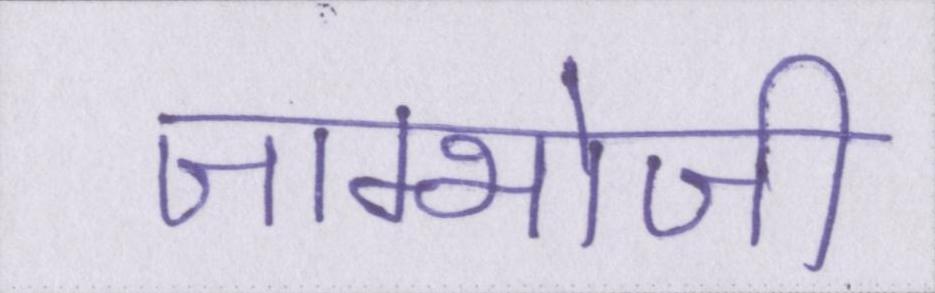 जाम्भोजी